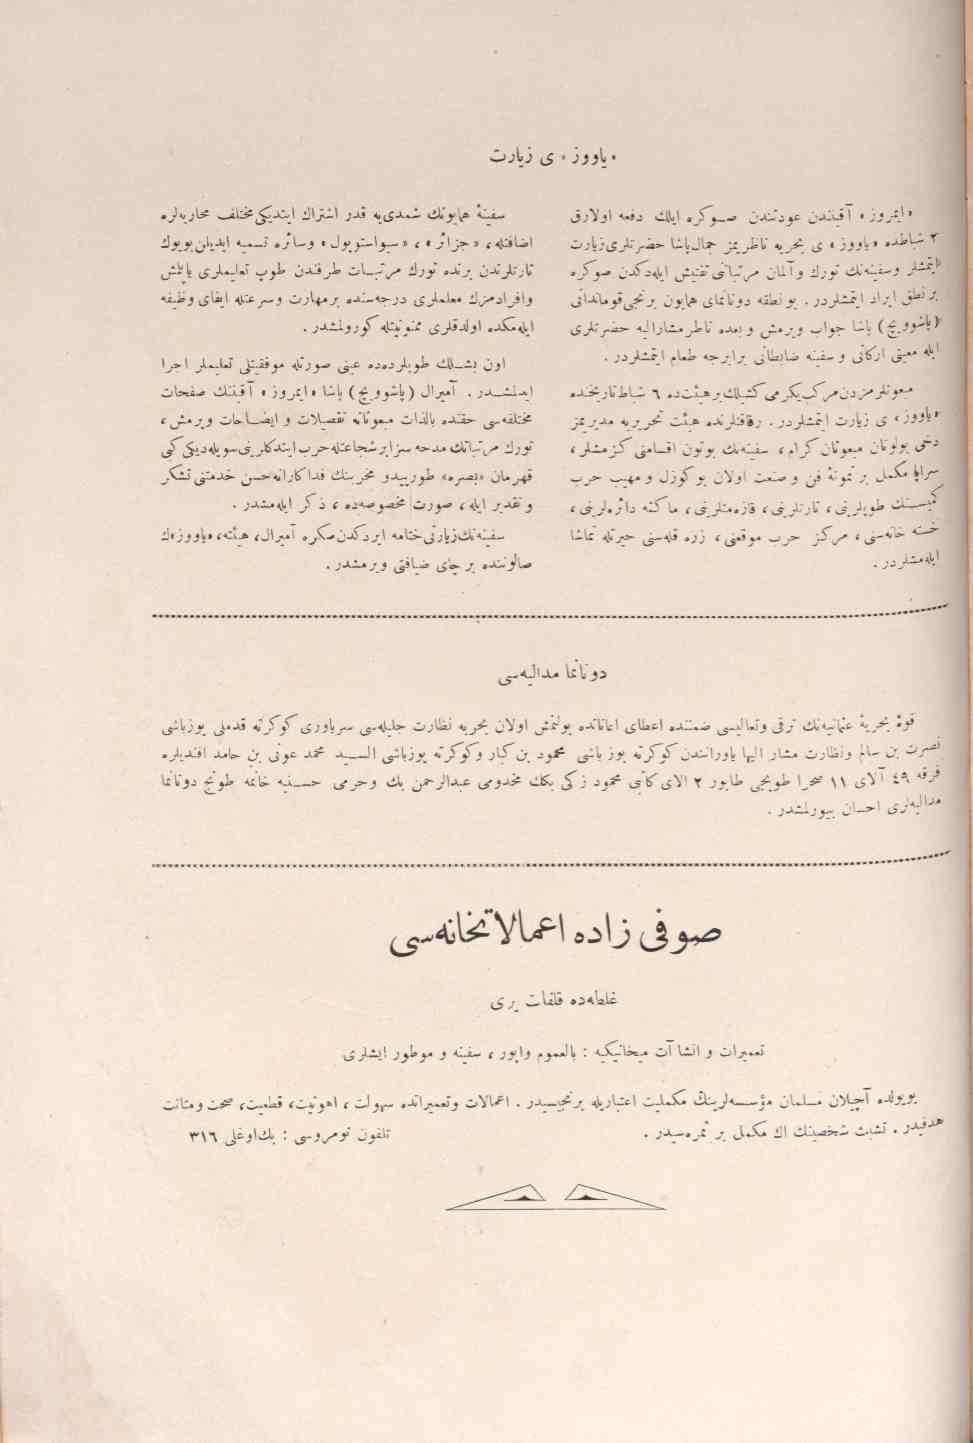 « ياووز » ى زيارت
« ايمروز » آقيندن عودتندن صوكره ايلك دفعه اولارق
٢ شباطده «ياووز» ى بحريه ناظريمز جمال پاشا حضرتلرى زيارت
ايتمشلر وسفينه‌نك تورك وآلمان مرتباتى تفتيش ايله‌دكدن صوكره
بر نطق ايراد ايتمشلردر . بو نطقه دونانماى همايون برنجى قوماندانى
(پاشوويچ) پاشا جواب ويرمش و بعده ناظر مشاراليه حضرتلرى
ايله معيتى اركانى و سفينه ضابطانى برابرجه طعام ايتمشلردر .
مبعوثلرمزدن مركب يكرمى كشيلك برهيئت‌ده ٦ شباط تاريخنده
«ياووز» ى زيارت ايتمشلردر . رفاقتلرنده هيئت تحريريه مديريمز
دخى بولونان مبعوثان كرام ، سفينه‌نك بوتون اقسامنى كزمشلر ،
سراپا مكمل بر نمونهٔ فن و صنعت اولان بو كوزل و مهيب حرب
كميسنك طوپلرينى ، تارتلرينى ، قازمتلرينى ، ماكنه دائره‌لرينى ،
خسته خانه‌سنى ، مركز حرب موقعنى ، زره قله‌سنى حيرتله تماشا
ايله‌مشلردر .
سفينهٔ همايونك شمدى‌يه قدر اشتراك ايتديكى مختلف محاربه‌لره
اضافتله ، « جزائر » ، « سيواستوپول » وسائره تسميه ايديلن بويوك
تارتلرندن برنده تورك مرتبات طرفندن طوپ تعليملرى ياپلمش
وافرادمزك معلملرى درجه‌سنده بر مهارت وسرعتله ايفاى وظيفه
ايله‌مكده اولدقلرى ممنونيتله كورولمشدر .
اون بشلك طوپلرده‌ده عينى صورتله موفقيتلى تعليملر اجرا
ايدلمشدر . آميرال (پاشوويچ) پاشا « ايمروز » آقيننك صفحات
مختلفه‌سى حقنده بالذات مبعوثانه تفصيلات و ايضاحات ويرمش ،
تورك مرتباتك مدحه سزا بر شجاعتله حرب ايتدكلرينى سويله‌ديكى كبى
قهرمان «بصره» طورپيدو مخربنك فداكارانه حسن خدمتنى تشكر
و تقدير ايله ، صورت مخصوصه‌ده ، ذكر ايله‌مشدر .
سفينه‌نك زيارتى ختامه ايردكدن صكره آميرال ، هيئته ، «ياووز»ك
صالوننده بر چاى ضيافتى ويرمشدر .
دونانما مداليه‌سى
قوهٔ بحريهٔ عثمانيه‌نك ترقى وتعاليسى ضمننده اعطاى اعاناتده بولنمش اولان بحريه نظارت جليله‌سى سرياورى كوكرته قدملى يوزباشى
نصرت بن سالم ونظارت مشار اليها ياورانندن كوكرته يوز باشى محمود بن كبار وكوكرته يوزباشى السيد محمد عونى بن حامد افنديلره
فرقه ٤٩ آلاى ١١ صحرا طوپجى طابور ٢ آلاى كاتبى محمود زكى بكك مخدومى عبدالرحمن بك وحرمى حسنيه خانمه طونج دونانما
مداليه‌لرى احسان بيورلمشدر .
صوفى زاده اعمالاتخانه‌سى
غلطه‌ده قلفات يرى
تعميرات و انشاآت ميخانيكيه : بالعموم واپور ، سفينه و موطور ايشلرى
بويولده آچيلان مسلمان مؤسسه‌لرينك مكمليت اعتباريله برنجيسيدر . اعمالات وتعميراتده سهولت ، اهونيت ، قطعيت ، صحت ومتانت
هدفيدر . تشبث شخصينك اك مكمل بر ثمره‌سيدر .
تلفون نومروسى : بك اوغلى ٣١٦